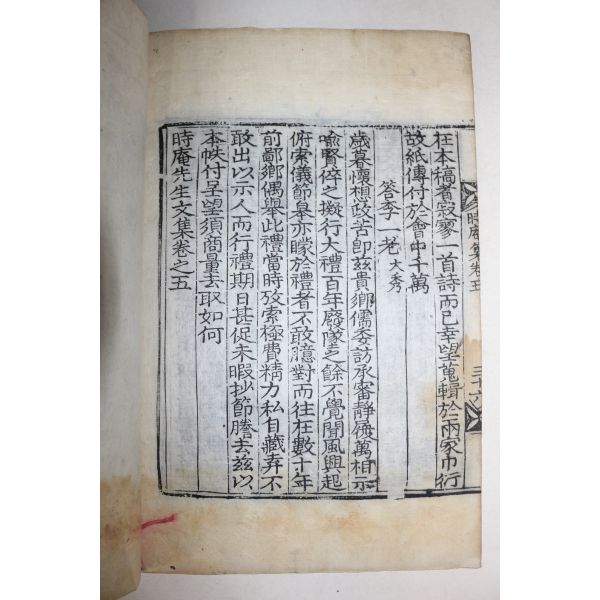 時庵集卷五
三十六
在本稿者寂寥一首詩而已幸望蒐輯於兩家巾衍
故紙傳付於會中千萬
答李一老大秀
歲暮懷想政苦卽茲貴鄕儒委訪承審靜履萬相示
喩賢倅之擬行大禮百年廢墜之餘不覺聞風興起
俯索儀節皐亦矇於禮者不敢臆對而往在數十年
前鄙鄕偶擧此禮當時攷索極費精力私自藏弆不
敢出以示人而行禮期日甚促未暇抄節謄去茲以
本帙付呈望須商量去取如何
時庵先生文集卷之五